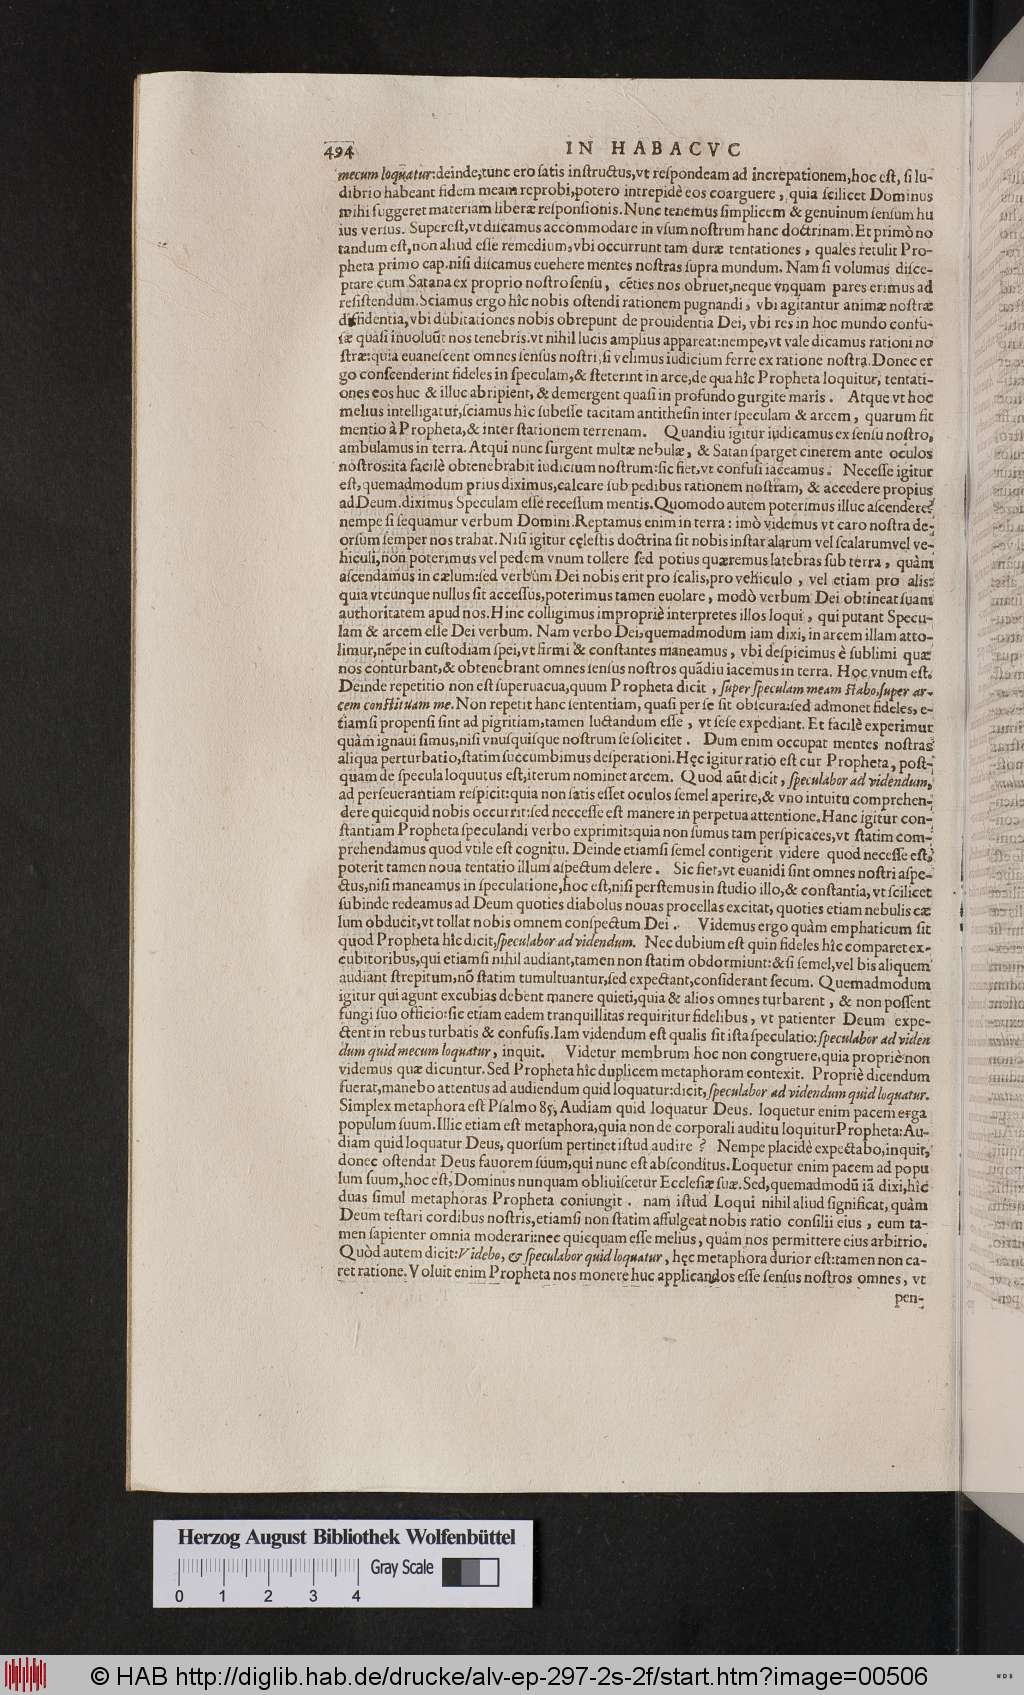 494 IN HABACVC
mecum loquatur: deinde, tunc ero ſatis inſtructus, vt reſpondeam ad increpationem, hoc eſt, ſi lu-
dibrio habeant fidem meam reprobi, potero intrepidè eos coarguere, quia ſcilicet Dominus
mihi ſuggeret materiam liberæ reſponſionis. Nunc tenemus ſimplicem & genuinum ſenſum hu
ius verſus. Supereſt, vt diſcamus accommodare in vſum noſtrum hanc doctrinam. Et primò no
tandum eſt, non aliud eſſe remedium, vbi occurrunt tam duræ tentationes, quales retulit Pro-
pheta primo cap. niſi diſcamus euehere mentes noſtras ſupra mundum. Nam ſi volumus diſce-
ptare cum Satana ex proprio noſtro ſenſu, cēties nos obruet, neque vnquam pares erimus ad
reſiſtendum. Sciamus ergo hîc nobis oſtendi rationem pugnandi, vbi agitantur animæ noſtræ
diffidentia, vbi dubitationes nobis obrepunt de prouidentia Dei, vbi res in hoc mundo confu-
ſæ quaſi inuoluūt nos tenebris. vt nihil lucis amplius appareat: nempe, vt vale dicamus rationi no
ſtræ: quia euaneſcent omnes ſenſus noſtri, ſi velimus iudicium ferre ex ratione noſtra. Donec er
go conſcenderint fideles in ſpeculam, & ſteterint in arce, de qua hîc Propheta loquitur, tentati-
ones eos huc & illuc abripient, & demergent quaſi in profundo gurgite maris. Atque vt hoc
melius intelligatur, ſciamus hîc ſubeſſe tacitam antitheſin inter ſpeculam & arcem, quarum fit
mentio à Propheta, & inter ſtationem terrenam. Quandiu igitur iudicamus ex ſenſu noſtro,
ambulamus in terra. Atqui nunc ſurgent multæ nebulæ, & Satan ſparget cinerem ante oculos
noſtros: ita facilè obtenebrabit iudicium noſtrum: ſic fiet, vt confuſi iaceamus. Neceſſe igitur
eſt, quemadmodum prius diximus, calcare ſub pedibus rationem noſtram, & accedere propius
ad Deum. diximus Speculam eſſe receſſum mentis. Quomodo autem poterimus illuc aſcendere?
nempe ſi ſequamur verbum Domini. Reptamus enim in terra: imò videmus vt caro noſtra de-
orſum ſemper nos trahat. Niſi igitur cęleſtis doctrina ſit nobis inſtar alarum vel ſcalarum vel ve-
hiculi, non poterimus vel pedem vnum tollere ſed potius quæremus latebras ſub terra, quàm
aſcendamus in cælum: ſed verbum Dei nobis erit pro ſcalis, pro vehiculo, vel etiam pro alis:
quia vtcunque nullus ſit acceſſus, poterimus tamen euolare, modò verbum Dei obtineat ſuam
authoritatem apud nos. Hinc colligimus impropriè interpretes illos loqui, qui putant Specu-
lam & arcem eſſe Dei verbum. Nam verbo Dei, quemadmodum iam dixi, in arcem illam atto-
limur, nēpe in cuſtodiam ſpei, vt firmi & conſtantes maneamus, vbi deſpicimus è ſublimi quæ
nos conturbant, & obtenebrant omnes ſenſus noſtros quādiu iacemus in terra. Hoc vnum eſt.
Deinde repetitio non eſt ſuperuacua, quum Propheta dicit, ſuper ſpeculam meam ſtabo, ſuper ar-
cem conſtituam me. Non repetit hanc ſententiam, quaſi per ſe ſit obſcura: ſed admonet fideles, e-
tiamſi propenſi ſint ad pigritiam, tamen luctandum eſſe, vt ſeſe expediant. Et facilè experimur
quàm ignaui ſimus, niſi vnuſquiſque noſtrum ſe ſolicitet. Dum enim occupat mentes noſtras
aliqua perturbatio, ſtatim ſuccumbimus deſperationi. Hęc igitur ratio eſt cur Propheta, poſt-
quam de ſpecula loquutus eſt, iterum nominet arcem. Quod aūt dicit, ſpeculabor ad videndum,
ad perſeuerantiam reſpicit: quia non ſatis eſſet oculos ſemel aperire, & vno intuitu comprehen-
dere quicquid nobis occurrit: ſed necceſſe eſt manere in perpetua attentione. Hanc igitur con-
ſtantiam Propheta ſpeculandi verbo exprimit: quia non ſumus tam perſpicaces, vt ſtatim com-
prehendamus quod vtile eſt cognitu. Deinde etiamſi ſemel contigerit videre quod neceſſe eſt,
poterit tamen noua tentatio illum aſpectum delere. Sic fiet, vt euanidi ſint omnes noſtri aſpe-
ctus, niſi maneamus in ſpeculatione, hoc eſt, niſi perſtemus in ſtudio illo, & conſtantia, vt ſcilicet
ſubinde redeamus ad Deum quoties diabolus nouas procellas excitat, quoties etiam nebulis cæ
lum obducit, vt tollat nobis omnem conſpectum Dei. Videmus ergo quàm emphaticum ſit
quod Propheta hîc dicit, ſpeculabor ad videndum. Nec dubium eſt quin fideles hîc comparet ex-
cubitoribus, qui etiamſi nihil audiant, tamen non ſtatim obdormiunt: & ſi ſemel, vel bis aliquem
audiant ſtrepitum, nō ſtatim tumultuantur, ſed expectant, conſiderant ſecum. Quemadmodum
igitur qui agunt excubias debent manere quieti, quia & alios omnes turbarent, & non poſſent
fungi ſuo officio: ſic etiam eadem tranquillitas requiritur fidelibus, vt patienter Deum expe-
ctent in rebus turbatis & confuſis. Iam videndum eſt qualis ſit iſta ſpeculatio: ſpeculabor ad viden
dum quid mecum loquatur, inquit. Videtur membrum hoc non congruere, quia propriè non
videmus quæ dicuntur. Sed Propheta hîc duplicem metaphoram contexit. Propriè dicendum
fuerat, manebo attentus ad audiendum quid loquatur: dicit, ſpeculabor ad videndum quid loquatur.
Simplex metaphora eſt Pſalmo 85, Audiam quid loquatur Deus. loquetur enim pacem erga
populum ſuum. Illic etiam eſt metaphora, quia non de corporali auditu loquitur Propheta: Au-
diam quid loquatur Deus, quorſum pertinet iſtud audire? Nempe placidè expectabo, inquit,
donec oſtendat Deus fauorem ſuum, qui nunc eſt abſconditus. Loquetur enim pacem ad popu
lum ſuum, hoc eſt, Dominus nunquam obliuiſcetur Eccleſiæ ſuæ. Sed, quemadmodū iā dixi, hîc
duas ſimul metaphoras Propheta coniungit. nam iſtud Loqui nihil aliud ſignificat, quàm
Deum teſtari cordibus noſtris, etiamſi non ſtatim affulgeat nobis ratio conſilii eius, eum ta-
men ſapienter omnia moderari: nec quicquam eſſe melius, quàm nos permittere eius arbitrio.
Quòd autem dicit: Videbo, & ſpeculabor quid loquatur, hęc metaphora durior eſt: tamen non ca-
ret ratione. Voluit enim Propheta nos monere huc applicandos eſſe ſenſus noſtros omnes, vt
pen-
Herzog August Bibliothek Wolfenbüttel
Gray Scale
0 1 2 3 4
© HAB http://diglib.hab.de/drucke/alv-ep-297-2s-2f/start.htm?image=00506